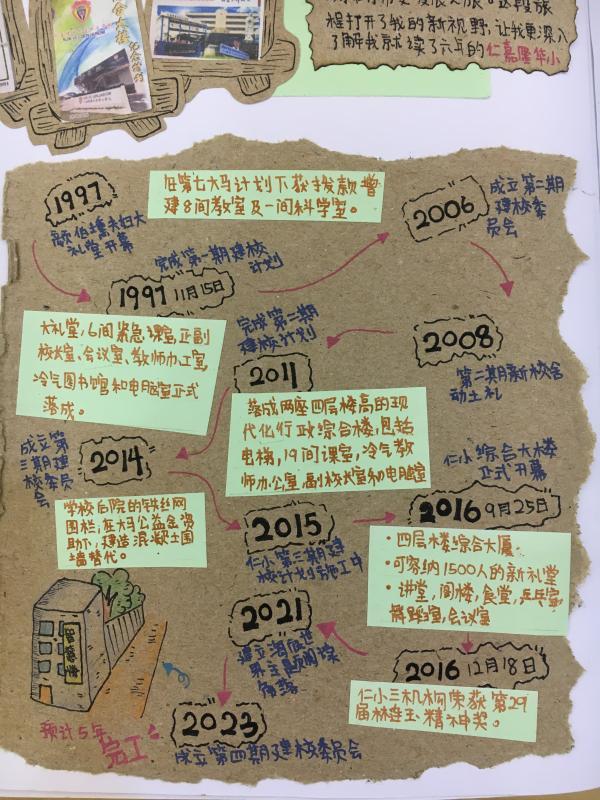 程打开了我的新视野,让我更深入
了解我就读了六年的仁嘉隆华小
1997
礼堂开幕
在第七大马计划下获拨款增
建8间教室及一间科学室。
2006
成立第二期
建校委
员会
完成第一期建校
计划
1997 11月15日
大礼堂,6间紧急课室,正副
校长室、会议室、教师办工室,
冷气图书馆和电脑室正式
落成。
完成第二期
建校计划
2011
2008
第二期新校舍
动土礼
落成两座四层楼高的现
代化行政综合楼,包括
电梯,19间课室,冷气教
师办公室,副校长室和电脑室
成立第
三期建
校委员
会
2014
学校后院的铁丝网
围栏,在大马公益金资
助下,建造混凝土围
墙替代。
2015
仁小第三期建
校计划施工中
仁小综合大楼
正式开幕
2016 9月25日
• 四层楼综合大厦
• 可容纳1500人的新礼堂
• 讲堂,阁楼,食堂,乒乓室
舞蹈室,会议室
2016 12月18日
仁小三机构荣获第29
届林连玉精神奖。
2021
2023
成立第四期建校委员会
预计5年
完工